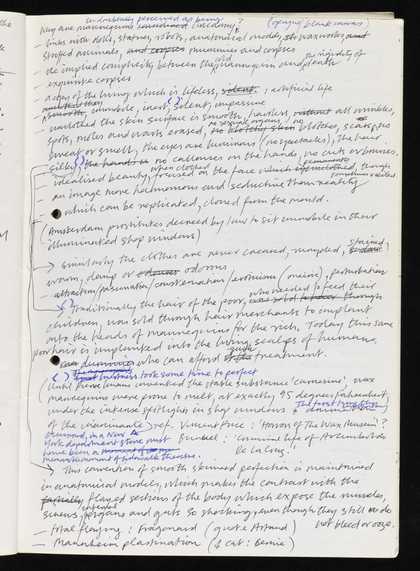 undoubtedly perceived as being
(opaque black canvas)
Why are mannequins uncanny?
- links with dolls, statues, robots, anatomical models, waxworks
stuffed animals, mummies and corpses
- the implied complicity between the mannequin and
the rigidity of
expensive corpses
- a copy of the living which is lifeless, artificial life
immobile, inert, silent, impassive
- unclothed the skin surface is smooth, hairless, all wrinkles,
no sexual organs
spots, moles and warts erased, no blotches, scars
sweat or smell, the eyes are luminous (no spectacles), the hair
silky, no callouses on the hands, no cuts or bruises.
when clothed
- idealised beauty, focused on the face, though
an image more harmonious and seductive than reality
- which can be replicated, cloned from the mould.
(Amsterdam prostitutes decreed by law to sit immobile in their
illuminated shop windows)
→ similarly the clothes are never creased, rumpled, stained,
worn, damp or odorous
- attraction/fascination/consternation/eroticism/unease/perturbation
who needed to feed their
Traditionally the hair of the poor,
children, was sold through hair merchants to implant
onto the heads of mannequins for the rich. Today this same
poor hair is implanted into the living scalps of humans
who can afford the treatment.
took some time to perfect
(Until Pierre Imans invented the stable substance 'carnisine', wax
mannequins were prone to melt, at exactly 95 degrees fahrenheit,
under the intense spotlights in shop windows
of the inanimate) ref. Vincent Price: 'Horror of the Wax Museum'?
demand, in a New
York department store must
have been a
Buñuel: 'Criminal life of Archimboldo
De La Cruz'!
→ This convention of smooth skinned perfection is maintained
in anatomical models, which makes the contrast with the
flayed sections of the body which expose the muscles,
internal
sinews, organs and guts so shocking, even though they still do
not bleed or ooze.
- total flaying: Fragonard (quote Artaud)
- Mannheim plastination (& cat: Bernie)